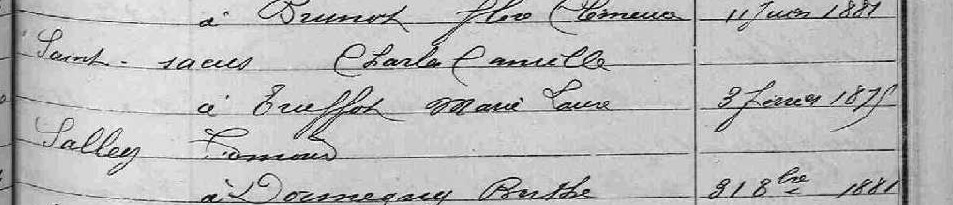 à Brunot Flore Clemence 11 Juin 1881
Saint-sacus Charles Camille
à Trueffot Marie Laure 3 février 1875
Salley
à Dormegny Berthe 31 8bre 1881